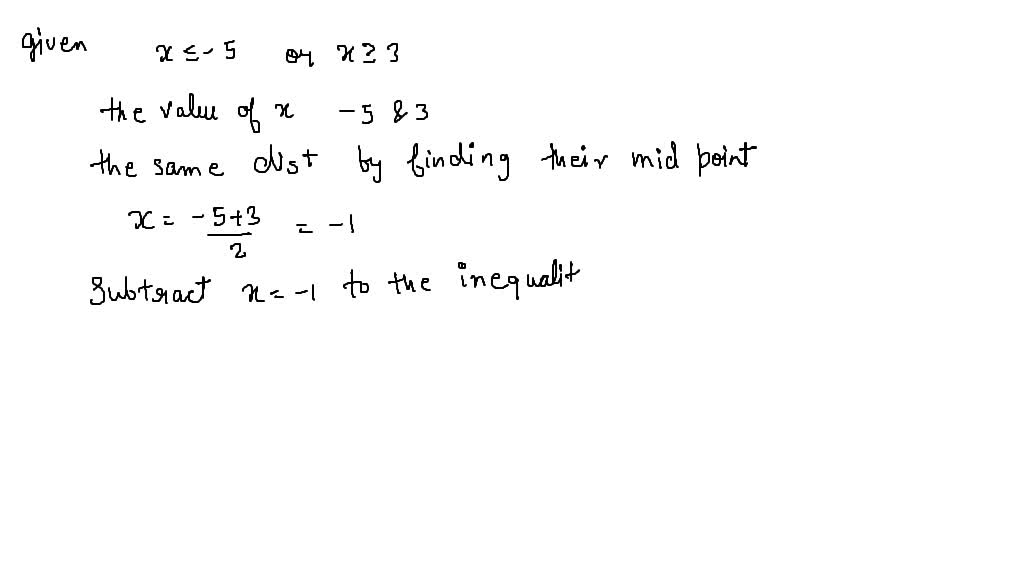 given x ≤ -5 or x ≥ 3
the value of x -5 & 3
the same dist by finding their mid point
x = -5+3/2 = -1
Subtract x = -1 to the inequalit